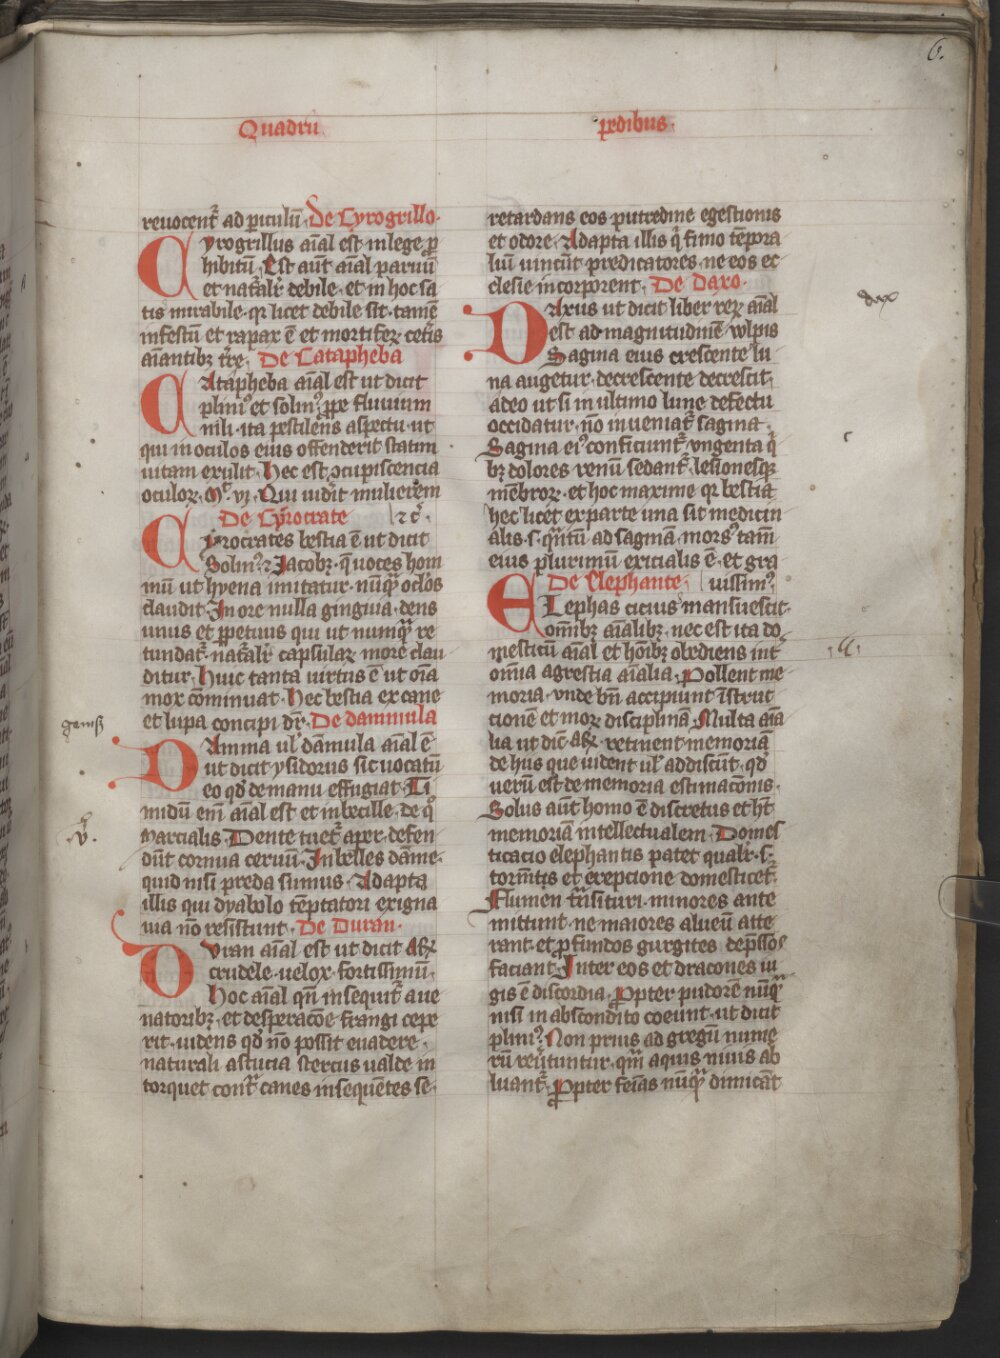 6.
Quadru
pedibus.
reuocent᷒ ad pituliū. De Cyrogrillo.
Cyrogrillus aīal est in lege ꝓ
hibitum. Est aūt aīal paruū
et nat᷑alr̄ debile. et in hoc sa
tis mirabile. qꝛ licet debile sit. tamē
infestū et rapax ē et mortiferꝫ cet᷑is
aīantibꝫ tr̄e. De Catapheba
Catapheba aīal est ut dicit
pliniꝰ et soliniꝰ ꝓpe fluuium
nili. ita pestilens aspectu ut
qui in oculos eius offenderit statim
uitam exulit. Hec est ꝯcupiscencia
oculoꝝ. Mᶜ. vj. Qui uid᷑it mulierem
De Cyrocrate ⁊ cᷓ.
Cyrocrates bestia ē ut dicit
Soliniꝰ. ⁊ Jacobꝫ. q̄ uoces hom
inū ut hyena imitatur. nūqᷓ oclos
claudit. In ore nulla gingiua. dens
unus et ꝑpetuus qui ut numqᷓ re
tundat᷒. nat᷑alr̄ capsulaꝝ more clau
ditur. Huic tanta uirtus ē ut oīa
mox cōminuat. Hec bestia ex cane
et lupa concipi dr̄. De dammula
gemß
Damma ul᷒ dāmula aīal ē
ut dicit ysidorus sic uocatū
eo qd᷒ de manu effugiat. Ti
midū eni aīal est et inbecille. de qͦ
Marcialis. Dente tuet᷒ aper. defen
dūt cornua ceruū. Inbelles dāme.
quid nisi preda sumus. Adapta
illis qui dyabolo tēptatori exigna
uia nō resistunt. De Duran.
Duran aīal est ut dicit Arꝫ
crudele. uelox. fortissimū.
Hoc aīal qn̄ insequit᷒ a ue
natoribꝫ. et desperacōe frangi cepe
rit. uidens qd᷒ nō possit euadere.
naturali astucia stercus ualde in
torquet cont᷑ canes insequētes se.
retardans eos putredine egestionis
et odore. Adapta illis q̄ fimo tēpora
liū uincūt predicatores. ne eos ec
clesie incorporent. De Daxo.
dax
Daxus ut dicit liber reꝝ aīal
est ad magnitudinē vulpis
Sagina eius crescente lu
na augetur. decrescente decrescit.
adeo ut si in ultimo lune defectu
occidatur. nō inueniat᷒ sagina.
Sagina eiꝰ conficiunt᷒ vngenta q̄
bꝫ dolores renū sedant᷒. lesionesqꝫ
mēbroꝝ. et hoc maxime qꝛ bestia
hec licet ex parte una sit medicin
alis. s. qᷓntū ad saginā. morsꝰ tam̄
eius plurimū exitialis ē. et gra
De Elephante. uissimꝰ.
Elephas citius mansuescit.
omībꝫ aīalibꝫ. nec est ita do
mesticū aīal et hoībꝫ obediens int᷒
omīa agrestia aīalia. Pollent me
moria. vnde bn̄ accipiunt īstruc
tionē et moꝝ disciplinā. Multa aīa
lia ut dic̄ Arꝫ. retinent memoriā
de hus que uident ul᷒ addiscūt. qd᷒
uerū est de memoria estimacōnis.
Solus aūt homo ē discretus et hꝫ
memoriā intellectualem. Domes
ticacio elephantis patet qualr̄. s.
tormītis et excepcione domesticet᷒.
Flumen trāsituri. minores ante
mittunt. ne maiores alueū atte
rant. et ꝓfundos gurgites depssōs
faciant. Inter eos et dracones iu
gis ē discordia. Propter pudorē nūqᷓ
nisi in abscondito coeunt. ut dicit
pliniꝰ. Non prius ad gregū nume
rū reu᷑tuntur. qm̄ aquis uiuis ab
luant᷒. Propter feīas nūqᷓ dimicāt